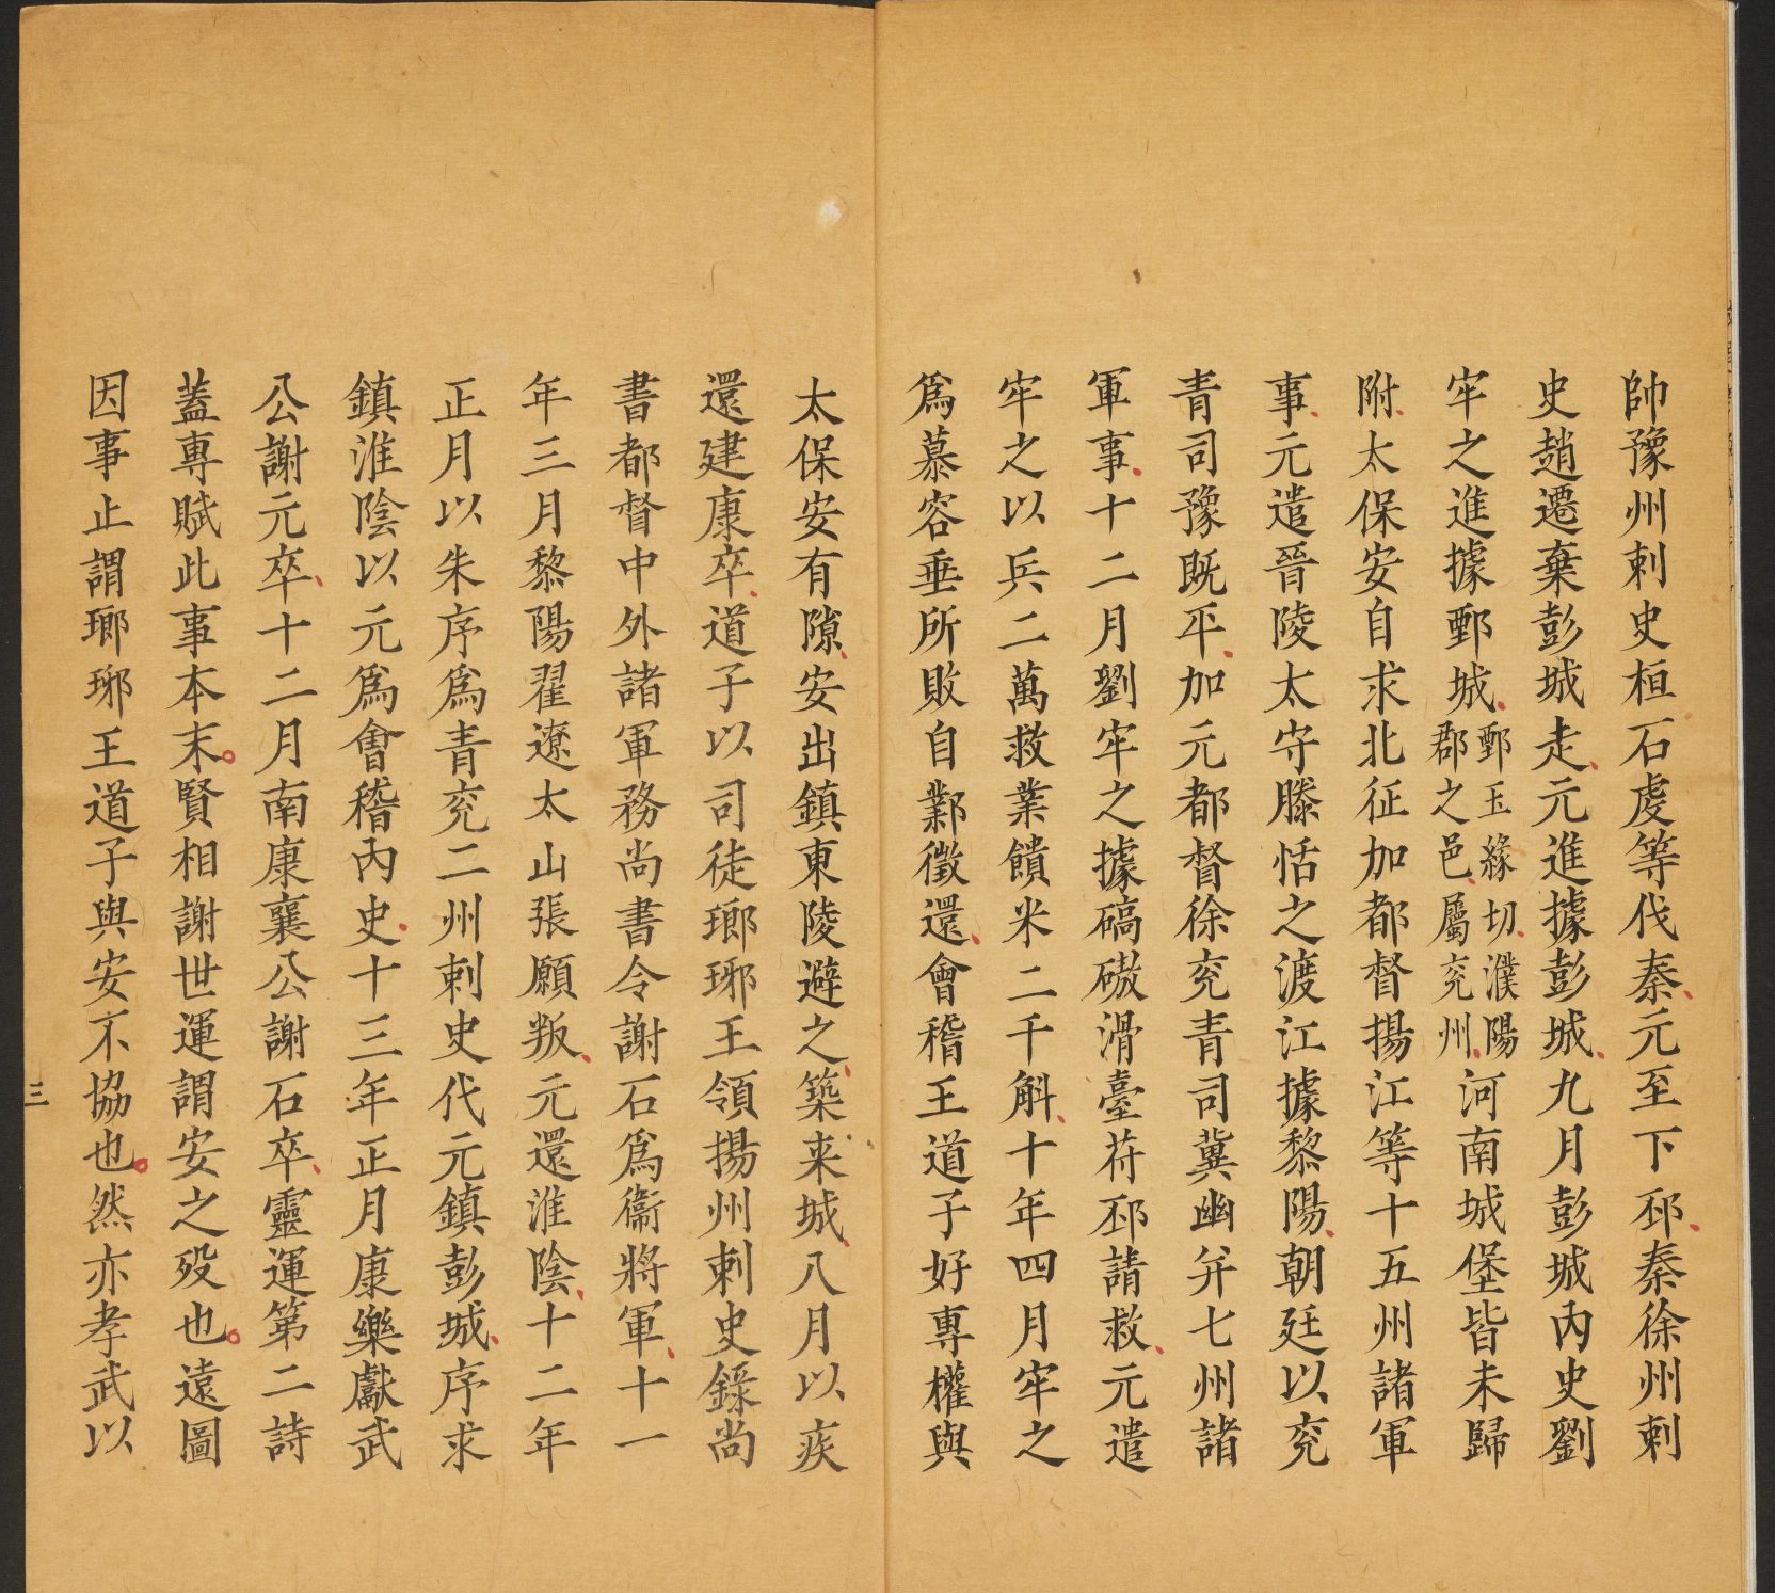 帥豫州刺史桓石虔等伐秦元至下邳秦徐州刺
史趙遷棄彭城走元進據彭城九月彭城內史劉
牢之進據鄄城鄄玉緣切濮陽郡之邑屬兖州河南城堡皆未歸
附太保安自求北征加都督揚江等十五州諸軍
事元遣晉陵太守滕恬之渡江據黎陽朝廷以兖
青司豫既平加元都督徐兖青司冀幽并七州諸
軍事十二月劉牢之據碻磝滑臺苻邳請救元遣
牢之以兵二萬救業饋米二千斛十年四月牢之
爲慕容垂所敗自鄴徵還會稽王道子好專權與
太保安有隙安出鎮東陵避之築来城八月以疾
還建康卒道子以司徒瑯琊王領揚州刺史錄尚
書都督中外諸軍務尚書令謝石爲衞將軍十一
年三月黎陽翟遼太山張願叛元還淮陰十二年
正月以朱序爲青兖二州刺史代元鎮彭城序求
鎮淮陰以元爲會稽內史十三年正月康樂獻武
公謝元卒十二月南康襄公謝石卒靈運第二詩
蓋專賦此事本末賢相謝世運謂安之歿也遠圖
因事止謂瑯琊王道子與安不協也然亦孝武以
三